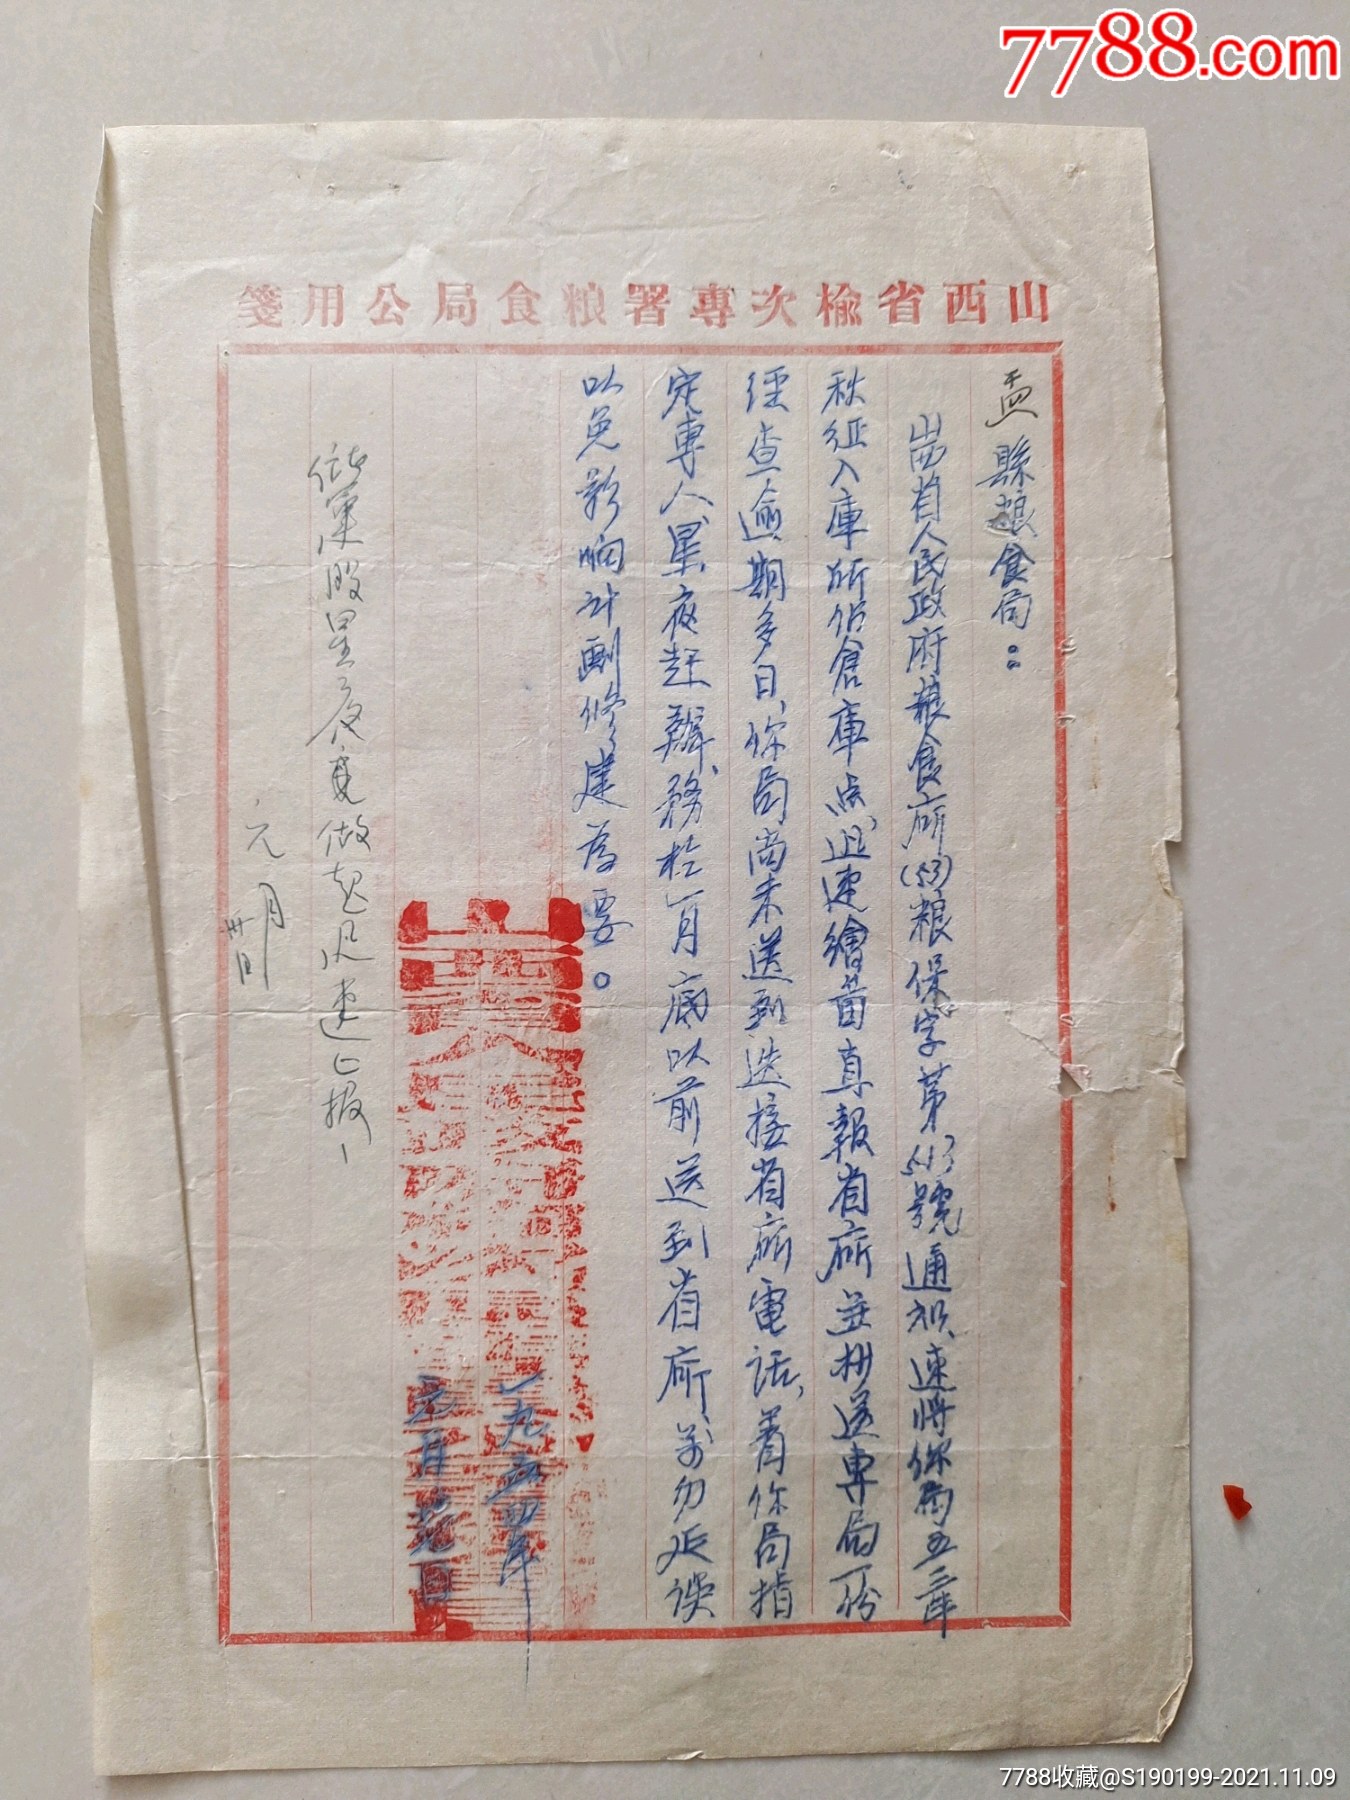 7788.com
山西省榆次專署粮食局公用箋
盂縣粮食局：
山西省人民政府粮食厅(53)粮保字第513號通知，速將你局五三年
秋征入庫所佔倉庫点，迅速繪苗直報省廳並抄送專局一份
經查逾期多日，你局尚未送到迭接省廳電话，着你局指
定專人，星夜赶辦，務於一月底以前送到省廳万勿延误
以免影响计劃修建为要。
一九五四年
元月 日
储運股星夜 做起迅速上报！
元月
卅日
7788收藏@S190199-2021.11.09